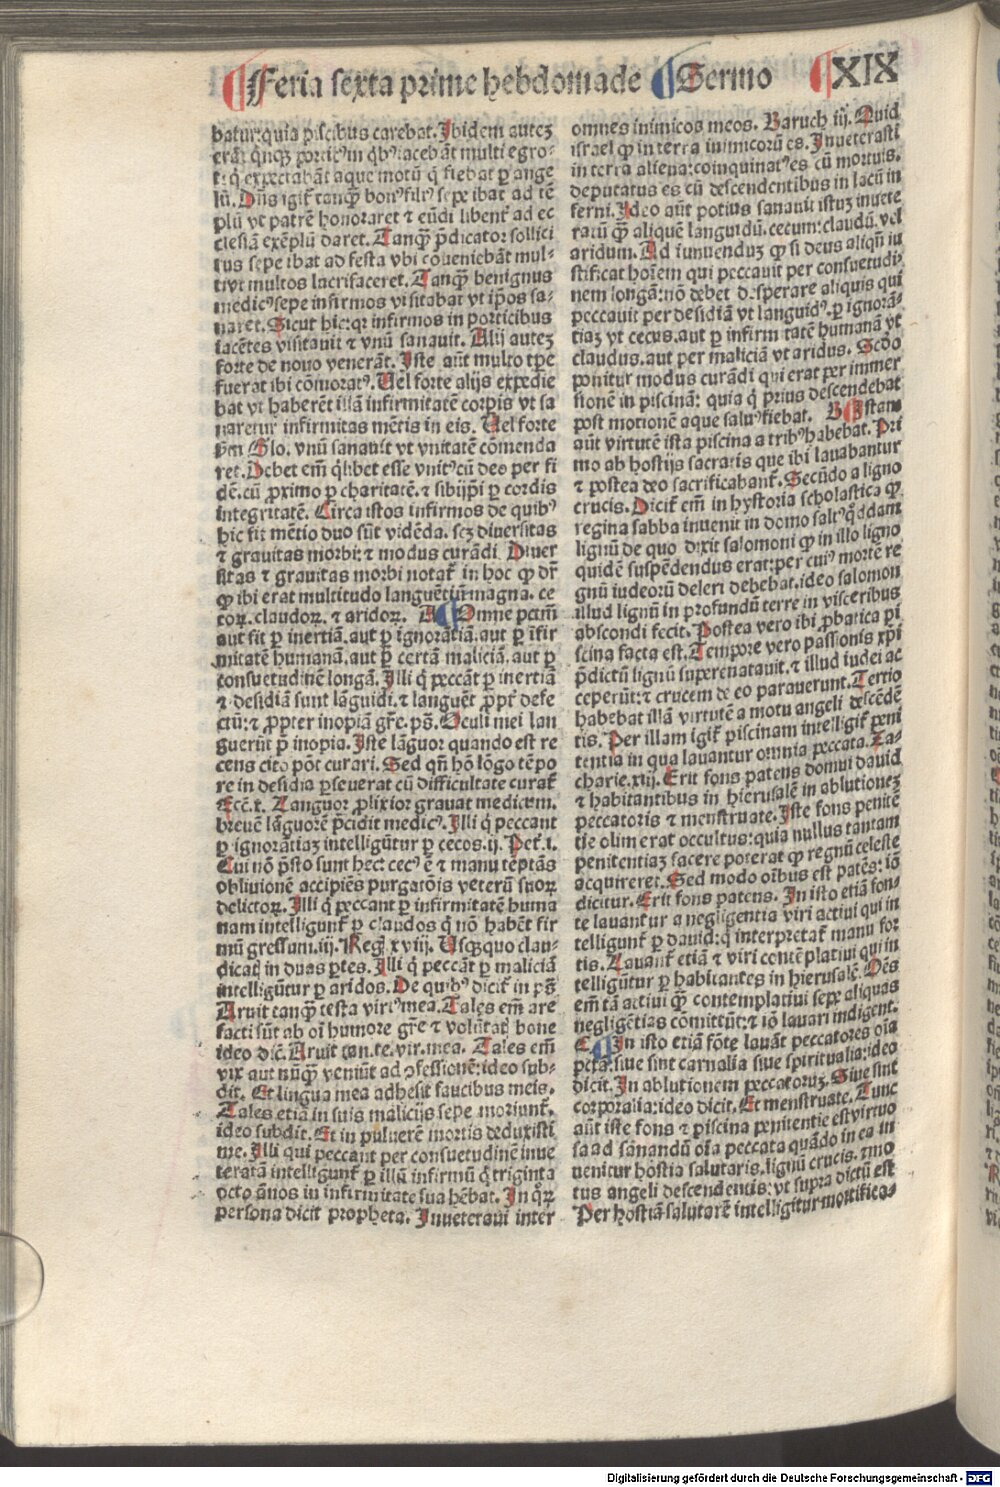 Feria sexta prime hebdomade Sermo XIX
batur:quia piscibus carebat. Ibidem autez
erāt qnqꝫ porticꝰ in qbꝰ iacebāt multi egro-
t: q̇ expectabāt aque motū q̇ fiebat ꝑ ange
lū. Dn̄s igit̄ tanqꝫ bonꝰ filiꝰ sepe ibat ad tē
plū vt patrē honoraret ⁊ eūdi libent̄ ad ec
clesiā exēplū daret. Tanqꝫ p̄dicator sollici
tus sepe ibat ad festa vbi cōueniebāt mul-
ti vt multos lucrifaceret. Tanqꝫ benignus
medicꝰ sepe infirmos visitabat vt ip̄os sa-
naret. Sicut hic: qr infirmos in porticibus
iacētes visitauit ⁊ vnū sanauit. Alij autez
forte de nouo venerāt. Iste aūt multo tp̄e
fuerat ibi cōmoratꝰ. Uel forte alijs expedie
bat vt haberēt illā infirmitatē corp̄is vt sa
naretur infirmitas mētis in eis. Uel forte
ẜm Glo. vnū sanauit vt vnitatē cōmenda
ret. Debet em̄ q̇libet esse vnitꝰ cū deo per fi
dē. cū ꝓximo ꝑ charitatē. ⁊ sibijp̄i ꝑ cordis
integritatē. Circa istos infirmos de quibꝰ
hic fit mētio duo sūt vidēda. scꝫ diuersitas
⁊ grauitas morbi: ⁊ modus curādi. Diuer
sitas ⁊ grauitas morbi notat̄ in hoc ꝙ dr̄
ꝙ ibi erat multitudo languētiū magna. ce
coꝝ. claudoꝝ. ⁊ aridoꝝ. A Omne pctm̄
aut fit ꝑ inertiā. aut ꝑ ignoratiā. aut ꝑ īfir
mitatē humanā. aut ꝑ certā maliciā. aut ꝑ
consuetudinē longā. Illi q̇ peccāt ꝑ inertiā
⁊ desidiā sunt lāguidi. ⁊ languēt ꝓpt̄ defe
ctū: ⁊ ꝓpter inopiā gr̄e. ps̄. Oculi mei lan
guerūt p̄ inopia. Iste lāguor quando est re
cens cito pōt curari. Sed qn̄ hō lōgo tēpo
re in desidia ꝑseuerat cū difficultate curat̄
Ecc̄i. x. Languor ꝓlixior grauat medicum.
breuē lāguorē p̄cidit medicꝰ. Illi q̇ peccant
ꝑ ignorātiaz intelligūtur ꝑ cecos. ij. Pet̄. i.
Cui nō p̄sto sunt hec: cecꝰ ē ⁊ manu tēptās
obliuionē accipiēs purgatōis veterū suoꝝ
delictoꝝ. Illi q̇ peccant ꝑ infirmitatē huma
nam intelligunt̄ ꝑ claudos q̇ nō habēt fir
mū gressum. iij. Regꝫ xviij. Usqꝫquo clau-
dicat in duas ꝑtes. Illi q̇ peccāt ꝑ maliciā
intelligūtur ꝑ aridos. De quibꝰ dicit̄ in ps̄.
Aruit tanqꝫ testa virtꝰ mea. Tales em̄ are
facti sūt ab oī humore gr̄e ⁊ volūtat bone
ideo dic̄. Aruit tan. te. vir. mea. Tales em̄
vix aut nūqꝫ veniūt ad ꝯfessionē: ideo sub-
dit. Et lingua mea adhesit faucibus meis.
Tales etiā in suis malicijs sepe moriunt̄.
ideo subdit. Et in puluerē mortis deduxisti
me. Illi qui peccant per consuetudinē inue
teratā intelligunt̄ ꝑ illū infirmū q̇ triginta
octo ānos in infirmitate sua hēbat. In qꝝ
persona dicit propheta. Inueteraui inter
omnes inimicos meos. Baruch iij. Quid
israel ꝙ in terra inimicorū es. Inueterasti
in terra aliena: coinquinatꝰ es cū mortuis.
deputatus es cū descendentibus in lacū in
ferni. Ideo aūt potius sanauit istuz inuete
ratū qꝫ aliquē languidū. cecum: claudū. vel
aridum. Ad inuenduz ꝙ si deus aliqū iu
stificat hoīem qui peccauit per consuetudi-
nem longā: nō debet desperare aliquis qui
peccauit per desidiā vt languidꝰ. ꝑ ignorā-
tiaz vt cecus. aut ꝑ infirmitatē humanā vt
claudus. aut per maliciā vt aridus. Scd̄o
ponitur modus curādi qui erat per immer
sionē in piscinā: quia q̇ prius descendebat
post motionē aque saluꝰ fiebat. B Istam
aūt virtutē ista piscina a tribꝰ habebat. Pri
mo ab hostijs sacratis que ibi lauabantur
⁊ postea deo sacrificabant̄. Secūdo a ligno
crucis. Dicit̄ em̄ in hystoria scholastica ꝙ
regina sabba inuenit in domo saltꝰ q̇ddam
lignū de quo dixit salomoni ꝙ in illo ligno
quidē suspēdendus erat: per cuiꝰ mortē re
gnū iudeorū deleri debebat. ideo salomon
illud lignū in profundū terre in visceribus
abscondi fecit. Postea vero ibi ꝓbatica pi
scina facta est. Tempore vero passionis xp̄i
p̄dictū lignū superenatauit. ⁊ illud iudei ac
ceperūt: ⁊ crucem de eo parauerunt. Tertio
habebat illā virtutē a motu angeli descēdē
tis. Per illam igit̄ piscinam intelligit̄ peni
tentia in qua lauantur omnia peccata. Za-
charie. xiij. Erit fons patens domui dauid
⁊ habitantibus in hierusalē in ablutionez
peccatoris ⁊ menstruate. Iste fons penitē
tie olim erat occultus: quia nullus tantam
penitentiaz facere poterat ꝙ regnū celeste
acquireret. Sed modo oībus est patēs: iō
dicitur. Erit fons patens. In isto etiā fon-
te lauantur a negligentia viri actiui qui in
telligunt̄ ꝑ dauid: q̇ interpretat̄ manu for
tis. Lauant̄ etiā ⁊ viri contēplatiui qui in
telligūtur ꝑ habitantes in hierusalē. Oēs
em̄ tā actiui qꝫ contemplatiui sepe aliquas
negligētias cōmittūt: ⁊ iō lauari indigent.
C In isto etiā fōte lauāt peccatores oīa
pctā: siue sint carnalia siue spiritualia: ideo
dicit. In ablutionem peccatoruz. Siue sint
corporalia: ideo dicit. Et menstruate. Tunc
aūt iste fons ⁊ piscina penitentie est virtuo
sa ad sanandū oīa peccata quādo in ea in
uenitur hostia salutaris. lignū crucis. ⁊ mo
tus angeli descendentis: vt supra dictū est
Per hostiā salutarē intelligitur mortifica-
Digitalisierung gefördert durch die Deutsche Forschungsgemeinschaft - DFG